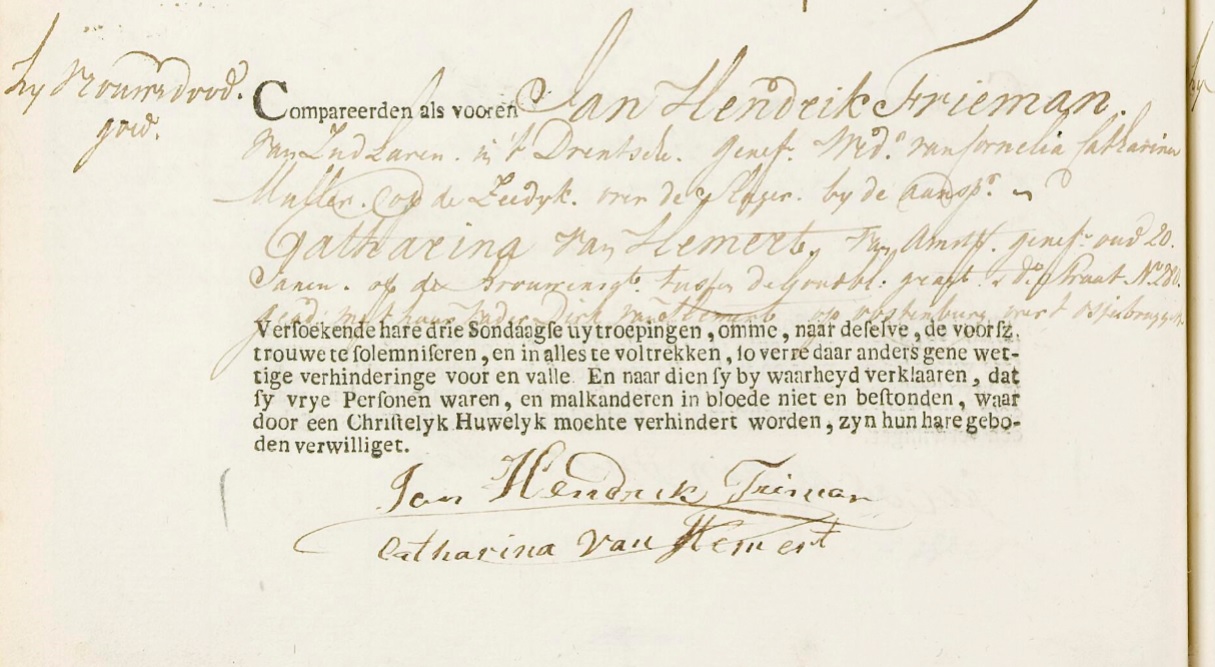 zy vrouws dood.
goed.
Compareerden als vooren Jan Hendrik Frieman.
van Zud Laren. in 't Drentsche. geref. Wed.r van Cornelia Catharina
Muller. op de Zeedyk. over de Slager. by de aansp.r en
Catharina van Hemert, van Amst. geref. oud 20.
Jaren. op de Brouwersgt. tussen de Goudsbl: graft & d.o straat N.o 280.
gead. met haar Vader Dirk van Hemert op oostenburg
Versoekende hare drie Sondaagse uytroepingen, omme, naar deselve, de voorsz.
trouwe te solemniseren, en in alles te voltrekken, so verre daar anders gene wet-
tige verhinderinge voor en valle. En naar dien sy by waarheyd verklaaren, dat
sy vrye Personen waren, en malkanderen in bloede niet en bestonden, waar
door een Christelyk Huwelyk mochte verhindert worden, zyn hun hare gebo-
den verwilliget.
Jan Hendrik Friman
Catharina van Hemert